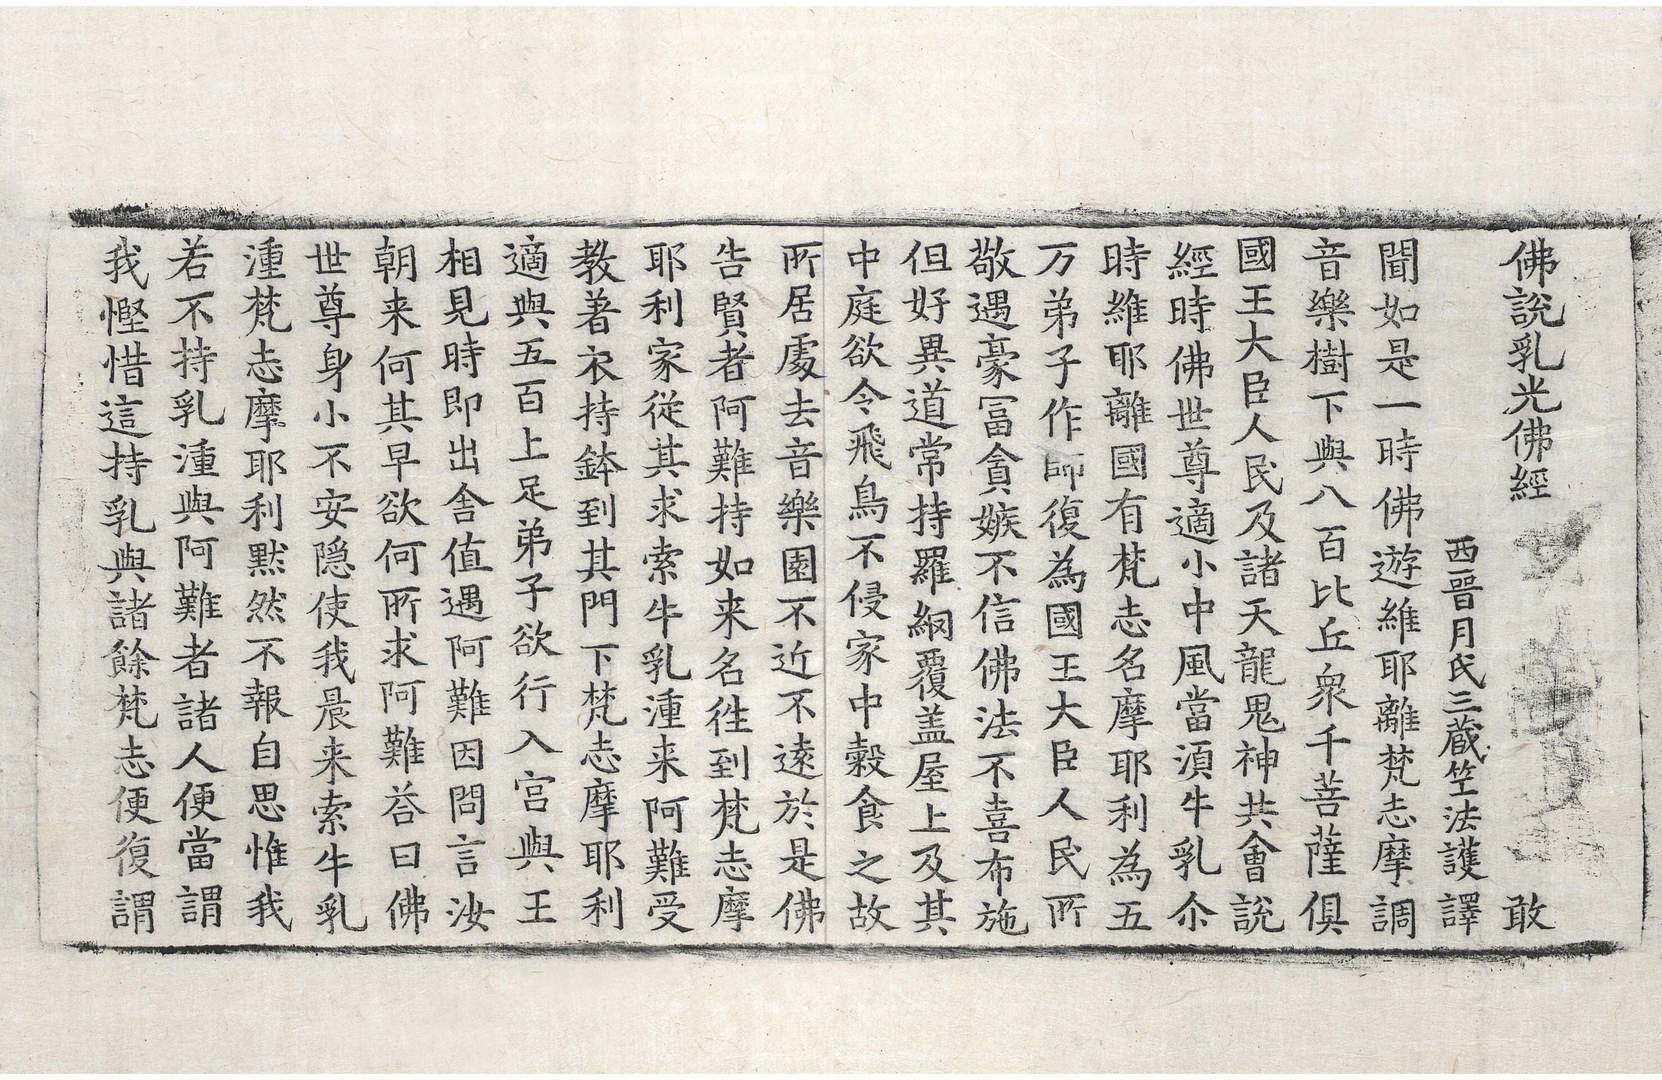 佛說乳光佛經 敢
西晉月氏三藏竺法護譯
聞如是一時佛遊維耶離梵志摩調
音樂樹下與八百比丘衆千菩薩俱
國王大臣人民及諸天龍鬼神共會說
經時佛世尊適小中風當湏牛乳尒
時維耶離國有梵志名摩耶利為五
万弟子作師復為國王大臣人民所
敬遇豪冨貪嫉不信佛法不喜布施
但好異道常持羅網覆盖屋上及其
中庭欲令飛鳥不侵家中穀食之故
所居處去音樂園不近不遠於是佛
告賢者阿難持如来名徃到梵志摩
耶利家從其求索牛乳湩来阿難受
教著衣持鉢到其門下梵志摩耶利
適與五百上足弟子欲行入宫與王
相見時即出舍值遇阿難因問言汝
朝来何其早欲何所求阿難荅曰佛
世尊身小不安隱使我晨来索牛乳
湩梵志摩耶利默然不報自思惟我
若不持乳湩與阿難者諸人便當謂
我慳惜這持乳與諸餘梵志便復謂